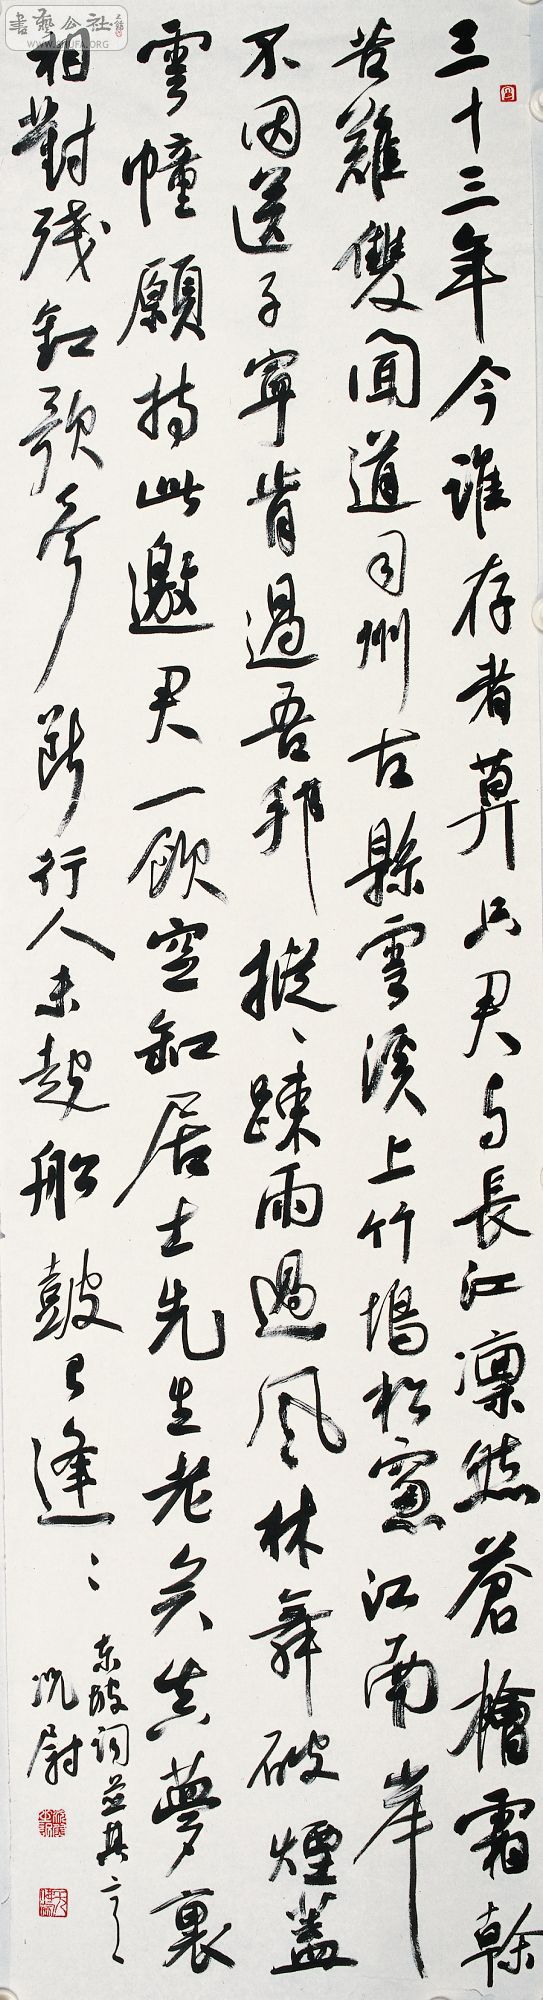 三十三年今誰存者算只君与長江凜然蒼檜霜幹
苦難雙聞道司州古縣雲溪上竹塢松窗江南岸
不因送子寧肯過吾邦摐〻踈雨過風林舞破煙蓋
雲幢願持此邀君一飲空缸居士先生老矣真夢裏
相對残釭歌聲断行人未起船鼓已逢〻
东坡词
書藝公社
WWW.SHUFA.ORG